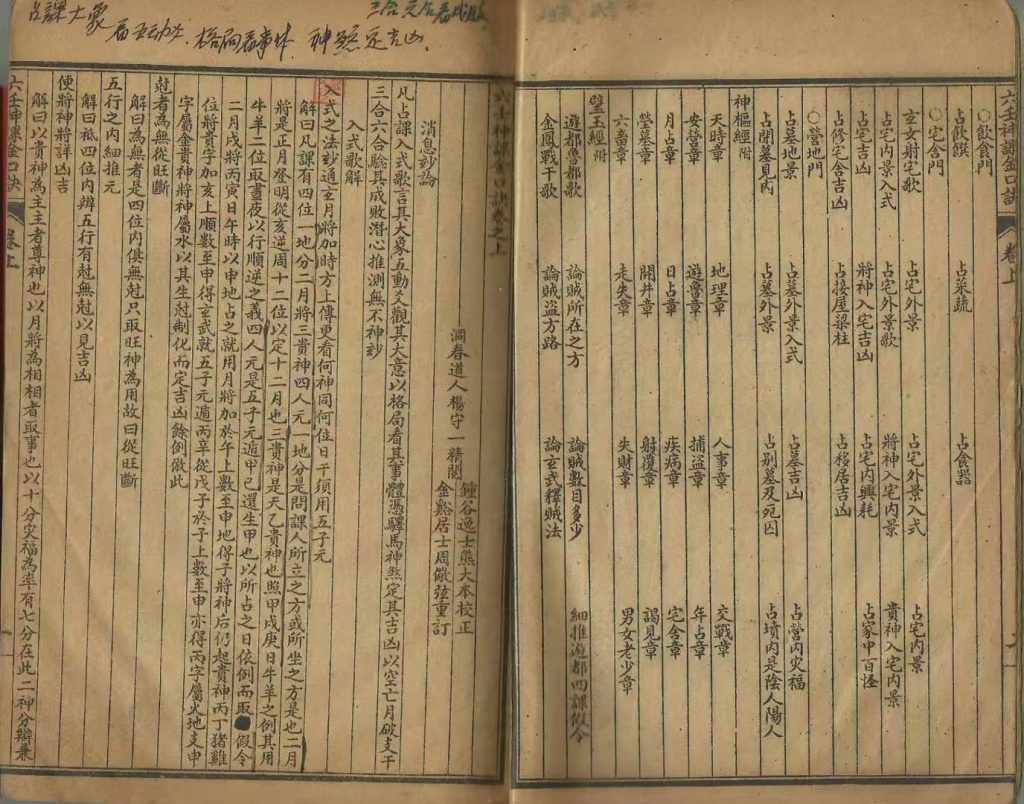 六壬神課金口訣 卷上
○飲食門
占飲饌 占菜蔬 占食器
○宅舍門
玄女射宅歌 占宅外景 占宅外景入式 占宅內景
占宅內景入式 占宅外景歌 將神入宅內景 貴神入宅內景
占宅吉凶 將神入宅吉凶 占宅內興耗 占家中百怪
占修宅舍吉凶 占接屋梁柱 占移居吉凶
○營地門
占墓地景 占墓外景入式 占墓吉凶 占營內灾福
占閉墓見丙 占墓外景 占別墓及死因 占墳內是陰人陽人
神樞經附
天時章 地理章 人事章 交戰章
安營章 遊魯章 捕盜章 年占章
月占章 日占章 疾病章 宅舍章
塋墓章 開井章 射覆章 謁見章
六畜章 走失章 失財章 男女老少章
璧玉經附
遊都魯都歌 論賊所在之方 論賊數目多少 細推遊都四課假令
金鳳戰干歌 論賊盜方路 論玄武釋賊法
占課大象
看五動爻 格局看事体 神煞定吉凶
三合六合看成敗
六壬神課金口訣卷之上
鍾谷逸士熊大本校正
洞春道人楊守一精閱
金谿居士周儆弦重訂
消息妙論
凡占課入式歌言其大象五動爻觀其大意以格局看其事體憑驛馬神煞定其吉凶以空亡月破支干
三合六合驗其成敗潛心推測無不神妙
入式歌解
入式之法妙通玄月將加時方上傳更看何神同何位日干須用五子元
解曰凡課有四位一地分二月將三貴神四人元一地分是問課人所立之方或所坐之方是也二月
將是正月登明從亥逆周十二位以定十二月也三貴神是天乙貴神也照甲戊庚日牛羊之例其用
牛羊二位取晝夜以行順逆之義四人元是五子元遁甲己還生甲也以所占之日依例而取假令
二月戌將丙寅日午時以申地占之就用月將加於午上數至申地得子將神后仍起貴神丙丁猪雞
位將貴字加亥上順數至申得玄武就五子元遁丙辛從戊子於子上數至申亦得丙字屬火地支申
字屬金貴神將神屬水以其生尅制化而定吉凶餘倒倣此
尅者為無從旺斷
解曰為無者是四位內俱無尅只取旺神為用故曰從旺斷
五行之內細推元
解曰祗四位內辨五行有尅無尅以見吉凶
便將神將詳凶吉
解曰以貴神為主主者尊神也以月將為相相者取事也以十分灾福為率有七分在此二神分辯兼
六壬神課金口訣 卷上 一